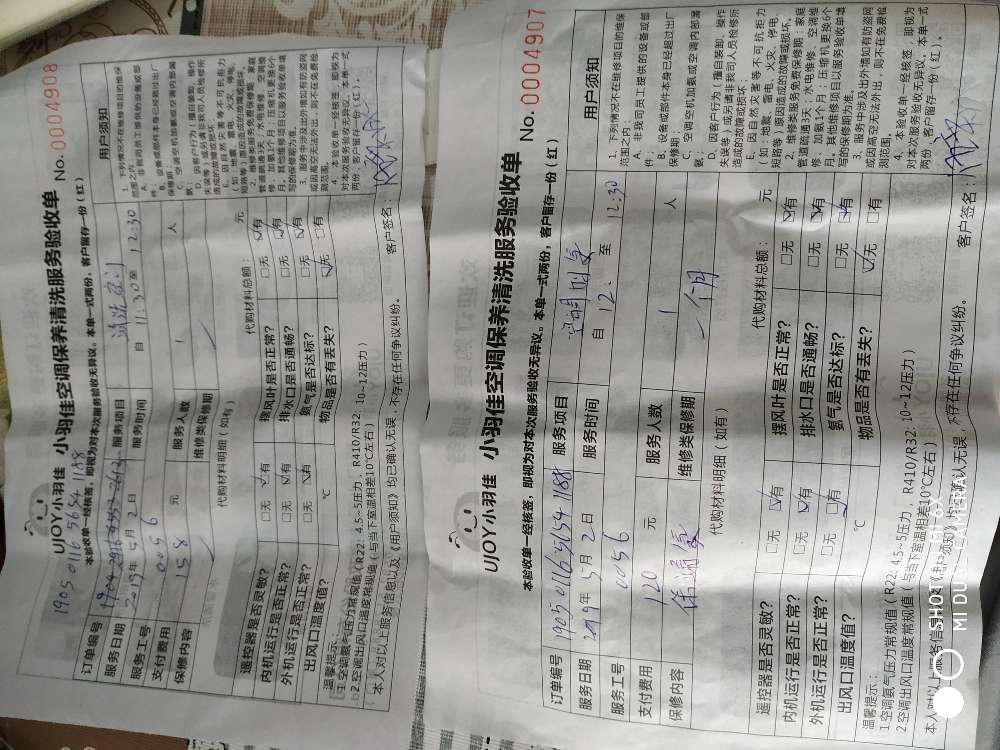 UJOY小羽佳 小羽佳空调保养清洗服务验收单 No. 0004908
本验收单一经核签，即视为对本次服务验收无异议。本单一式两份，客户留存一份（红）
1905 0116 5654 1188
订单编号
服务项目
服务日期 2019年5月2日
服务时间 自 11:30 至 12:30
服务工号 0056
服务人数 1 人
支付费用 158 元
维修类保修期
保修内容
代购材料明细（如有）
代购材料总额： 元
遥控器是否灵敏？ □无 □有
摆风叶是否正常？ □无 □有
内机运行是否正常？ □无 □有
排水口是否通畅？ □无 □有
外机运行是否正常？ □无 □有
氨气是否达标？ □无 □有
出风口温度值？ ℃
物品是否有丢失？ □无 □有
温馨提示：
1.空调氨气压力常规值（R22: 4.5~5压力，R410/R32: 10~12压力）
2.空调出风口温度常规值（与当下室温相差10℃左右）
本人对以上服务信息以及《用户须知》均已确认无误，不存在任何争议纠纷。
客户签名：
用户须知
1. 下列情况不在维修项目的维保
范围之内：
A. 非我司员工提供的设备或部
件；
B. 设备或部件本身已经超过出厂
保修期；
C. 空调空机加氨或空调内部漏
氨；
D. 因客户行为（擅自装卸、操作
失误等）或另请非我司人员检修所
造成的故障或损坏；
E. 因自然灾害等不可抗拒力
（如：地震、雷电、火灾、停电、
短路等）原因造成的故障或损坏。
2. 维修类服务免费保修期：家庭
管道疏通3天；水电维修、空调维
修、加氨1个月；压缩机更换6个
月，其他维修项目以服务验收单填
写的保修期为准。
3. 服务中涉及出外墙如有防盗网
或因高空无法外出，则不在免费检
测范围。
4. 本验收单一经核签，即视为
对本次服务验收无异议，本单一式
两份，客户留存一份（红）。
UJOY小羽佳 小羽佳空调保养清洗服务验收单 No. 0004907
本验收单一经核签，即视为对本次服务验收无异议。本单一式两份，客户留存一份（红）
订单编号 1905 0116 5654 1188
服务项目
服务日期 2019年5月2日
服务时间 自 12: 至 12:30
服务工号 0056
服务人数 1 人
支付费用 120 元
维修类保修期 一个月
保修内容
代购材料明细（如有）
代购材料总额： 元
遥控器是否灵敏？ □无 □有
摆风叶是否正常？ □无 □有
内机运行是否正常？ □无 □有
排水口是否通畅？ □无 □有
外机运行是否正常？ □无 □有
氨气是否达标？ □无 □有
出风口温度值？ ℃
物品是否有丢失？ □无 □有
温馨提示：
1.空调氨气压力常规值（R22: 4.5~5压力，R410/R32: 10~12压力）
2.空调出风口温度常规值（与当下室温相差10℃左右）
本人对以上服务信息以及《用户须知》均已确认无误，不存在任何争议纠纷。
客户签名：
用户须知
1. 下列情况不在维修项目的维保
范围之内：
A. 非我司员工提供的设备或部
件；
B. 设备或部件本身已经超过出厂
保修期；
C. 空调空机加氨或空调内部漏
氨；
D. 因客户行为（擅自装卸、操作
失误等）或另请非我司人员检修所
造成的故障或损坏；
E. 因自然灾害等不可抗拒力
（如：地震、雷电、火灾、停电、
短路等）原因造成的故障或损坏。
2. 维修类服务免费保修期：家庭
管道疏通3天；水电维修、空调维
修、加氨1个月；压缩机更换6个
月，其他维修项目以服务验收单填
写的保修期为准。
3. 服务中涉及出外墙如有防盗网
或因高空无法外出，则不在免费检
测范围。
4. 本验收单一经核签，即视为
对本次服务验收无异议，本单一式
两份，客户留存一份（红）。
MI DUAL CAMERA